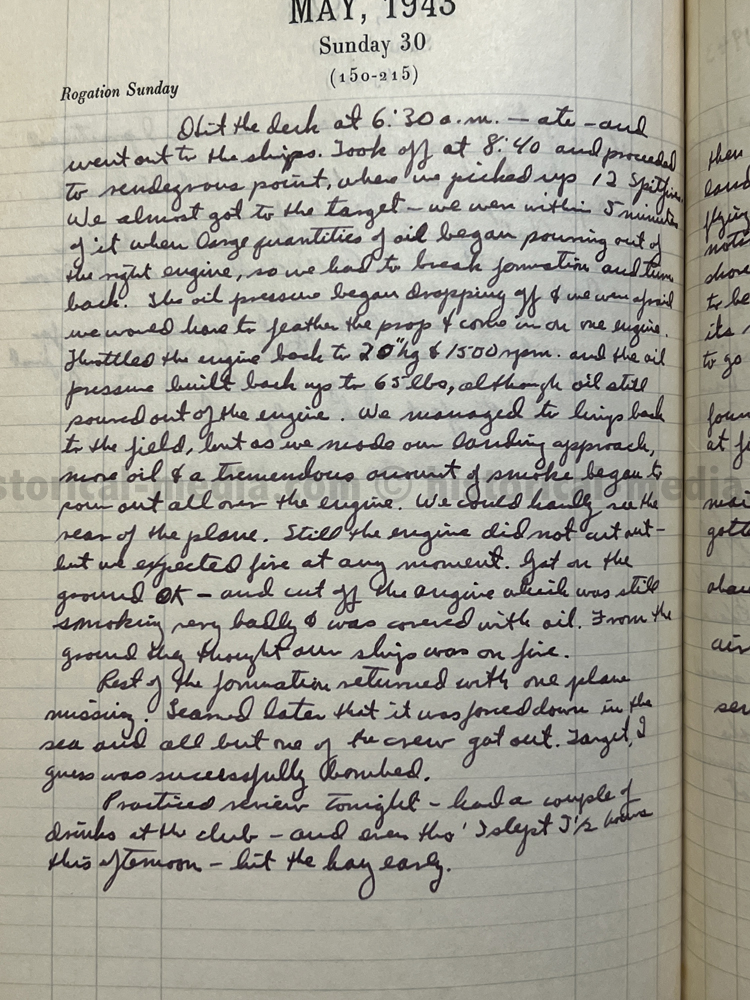 MAY, 1943
Sunday 30
(150-215)
Rogation Sunday
Hit the deck at 6:30 a.m. — ate – and
went out to the ships. Took off at 8:40 and proceeded
to rendezvous point, where we picked up 12 Spitfires.
We almost got to the target – we were within 5 minutes
of it when large quantities of oil began pouring out of
the right engine, so we had to break formation and turn
back. The oil pressure began dropping off & we were afraid
we would have to feather the prop & come in on one engine.
Throttled the engine back to 20"hg & 1500 rpm. and the oil
pressure built back up to 65 lbs, although oil still
poured out of the engine. We managed to limp back
to the field, but as we made our landing approach,
more oil & a tremendous amount of smoke began to
pour out all over the engine. We could hardly see the
rear of the plane. Still the engine did not cut out –
but we expected fire at any moment. Got on the
ground OK – and cut off the engine which was still
smoking very badly & was covered with oil. From the
ground they thought our ship was on fire.
Rest of the formation returned with one plane
missing. Learned later that it was forced down in the
sea and all but one of the crew got out. Target, I
guess was sucessfully bombed.
Practiced review tonight – had a couple of
drinks at the club – and even tho' I slept 3 1/2 hours
this afternoon – hit the hay early.
then
land
flying
shore
to be
its
to go
at